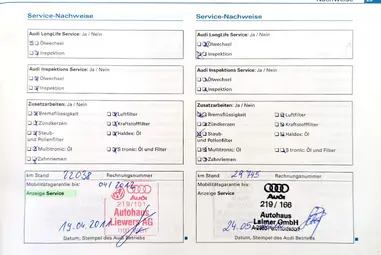 Nachweise
Service-Nachweise
Audi LongLife Service: Ja / Nein
Ölwechsel
Inspektion
Audi Inspektions Service: Ja / Nein
Ölwechsel
Inspektion
Zusatzarbeiten: Ja / Nein
Bremsflüssigkeit Luftfilter
Zündkerzen Kraftstofffilter
Staub- und Pollenfilter Haldex: Öl
Multitronic: Öl S tronic: Öl und Filter
Zahnriemen
km Stand 22038 Rechnungsnummer
Mobilitätsgarantie bis: 04/2012
Anzeige Service
Audi
219/101
Autohaus
Liewers AG
19.04.2011
Datum, Stempel des Audi Betriebs
Service-Nachweise
Audi LongLife Service: Ja / Nein
Ölwechsel
Inspektion
Audi Inspektions Service: Ja / Nein
Ölwechsel
Inspektion
Zusatzarbeiten: Ja / Nein
Bremsflüssigkeit Luftfilter
Zündkerzen Kraftstofffilter
Staub- und Pollenfilter Haldex: Öl
Multitronic: Öl S tronic: Öl und Filter
Zahnriemen
km Stand 29745 Rechnungsnummer
Mobilitätsgarantie bis:
Anzeige Service
Audi
219 / 168
Autohaus
Laimer GmbH
24.05
Datum, Stempel des Audi Betriebs